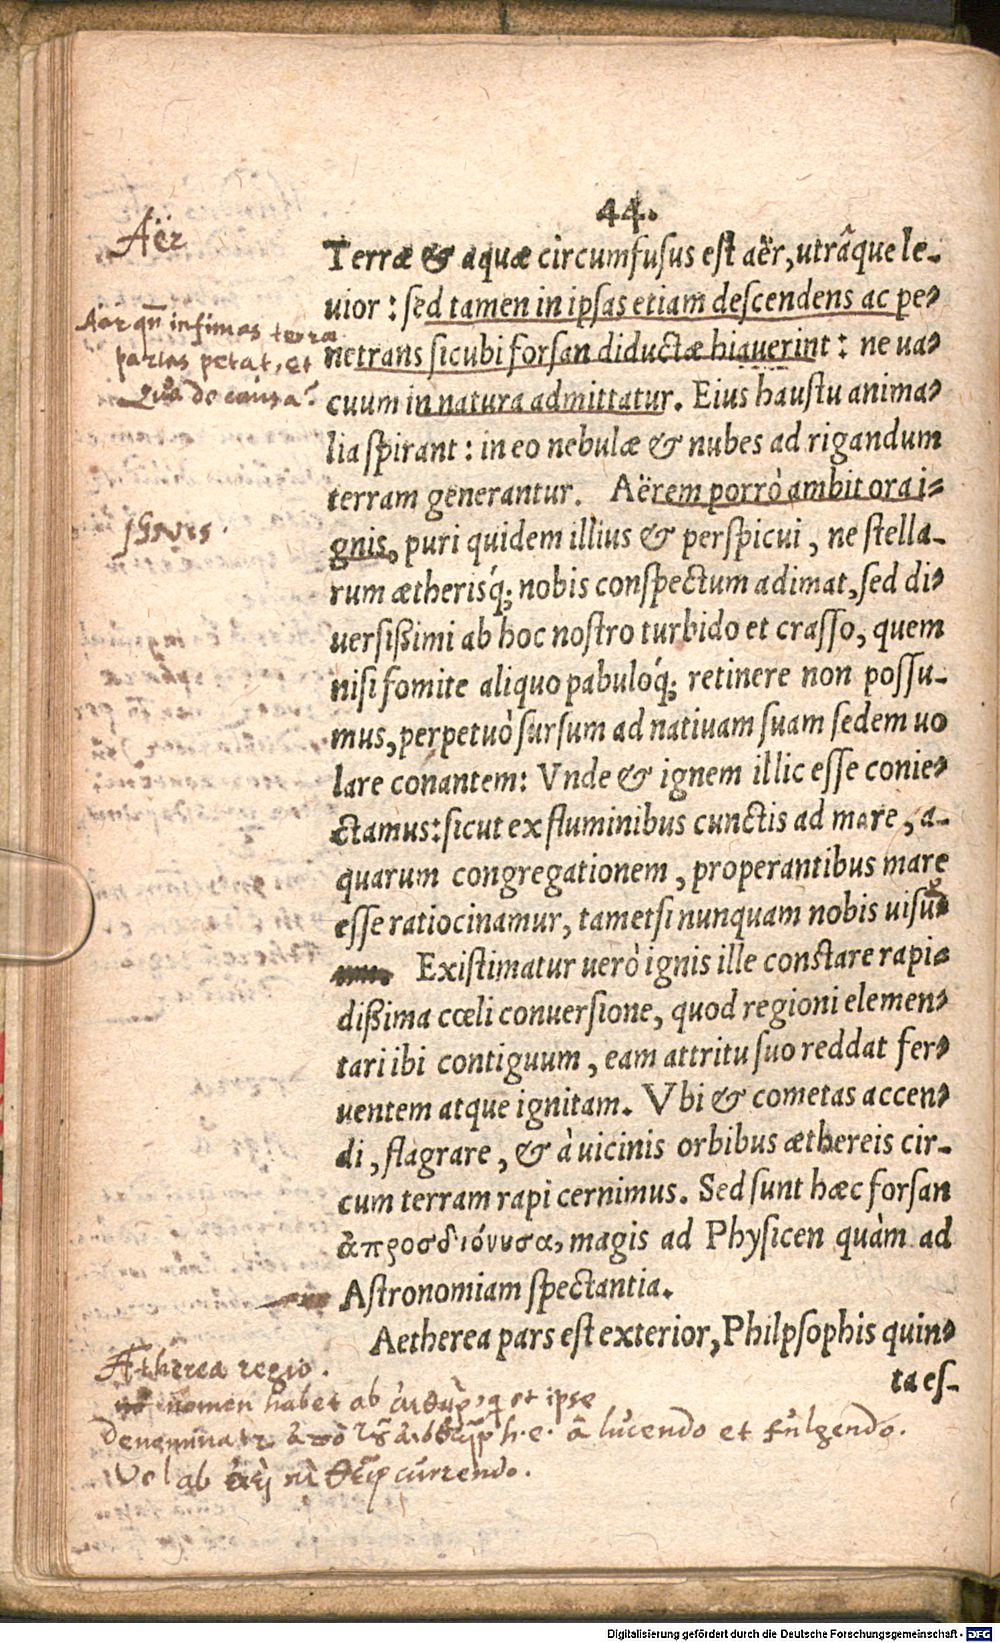 44.
Aër
Terræ & aquæ circumfusus est aër, utrâque le-
uior: sed tamen in ipsas etiam descendens ac pe-
Aër qn infimas terræ
netrans sicubi forsan diductæ hiauerint: ne ua-
partes petat, et
cuum in natura admittatur. Eius haustu anima-
Qua de causa?
lia spirant: in eo nebulæ & nubes ad rigandum
terram generantur. Aërem porrò ambit ora i-
Ignis.
gnis, puri quidem illius & perspicui, ne stella-
rum ætherisq́; nobis conspectum adimat, sed di-
uersißimi ab hoc nostro turbido et crasso, quem
nisi fomite aliquo pabulóq́; retinere non possu-
mus, perpetuò sursum ad natiuam suam sedem uo
lare conantem: Vnde & ignem illic esse conie-
ctamus: sicut ex fluminibus cunctis ad mare, a-
quarum congregationem, properantibus mare
esse ratiocinamur, tametsi nunquam nobis uisu
Existimatur uerò ignis ille constare rapi-
dißima cœli conuersione, quod regioni elemen-
tari ibi contiguum, eam attritu suo reddat fer-
uentem atque ignitam. Vbi & cometas accen-
di, flagrare, & à uicinis orbibus æthereis cir-
cum terram rapi cernimus. Sed sunt hæc forsan
ἀπροσδιόνυσα, magis ad Physicen quàm ad
Astronomiam spectantia.
Aetherea pars est exterior, Philpsophis quin-
ta es-
Ætherea regio.
nomen habet ab et ipse
Denominatr h. e. â lucendo et fulgendo.
Vel ab currendo.
Digitalisierung gefördert durch die Deutsche Forschungsgemeinschaft - DFG